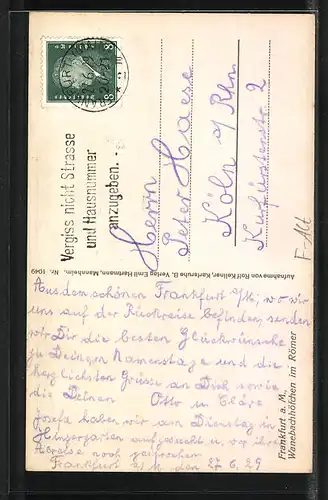 FRANKFURT
Vergiss nicht Strasse
und Hausnummer
anzugeben. -
Herrn
Peter Haese
Köln a/Rhn
Kurfürstenstr. 2
F-Alt
Aufnahme von Rolf Kellner, Karlsruhe, B. Verlag Emil Hartmann, Mannheim. Nr. 1046
Frankfurt a. M.,
Wanebachhöfchen im Römer
Aus dem schönen Frankfurt a/M, wo wir
uns auf der Rückreise befinden, senden
wir Dir die besten Glückwünsche
zu Deinem Namenstage und die
herzlichsten Grüsse an Dich sowie
die Deinen Otto u. Cläre
Josefa haben wir am Dienstag in
aufgesucht u. vor ihrer
Abreise noch gesprochen
Frankfurt a/M den 27.6.29